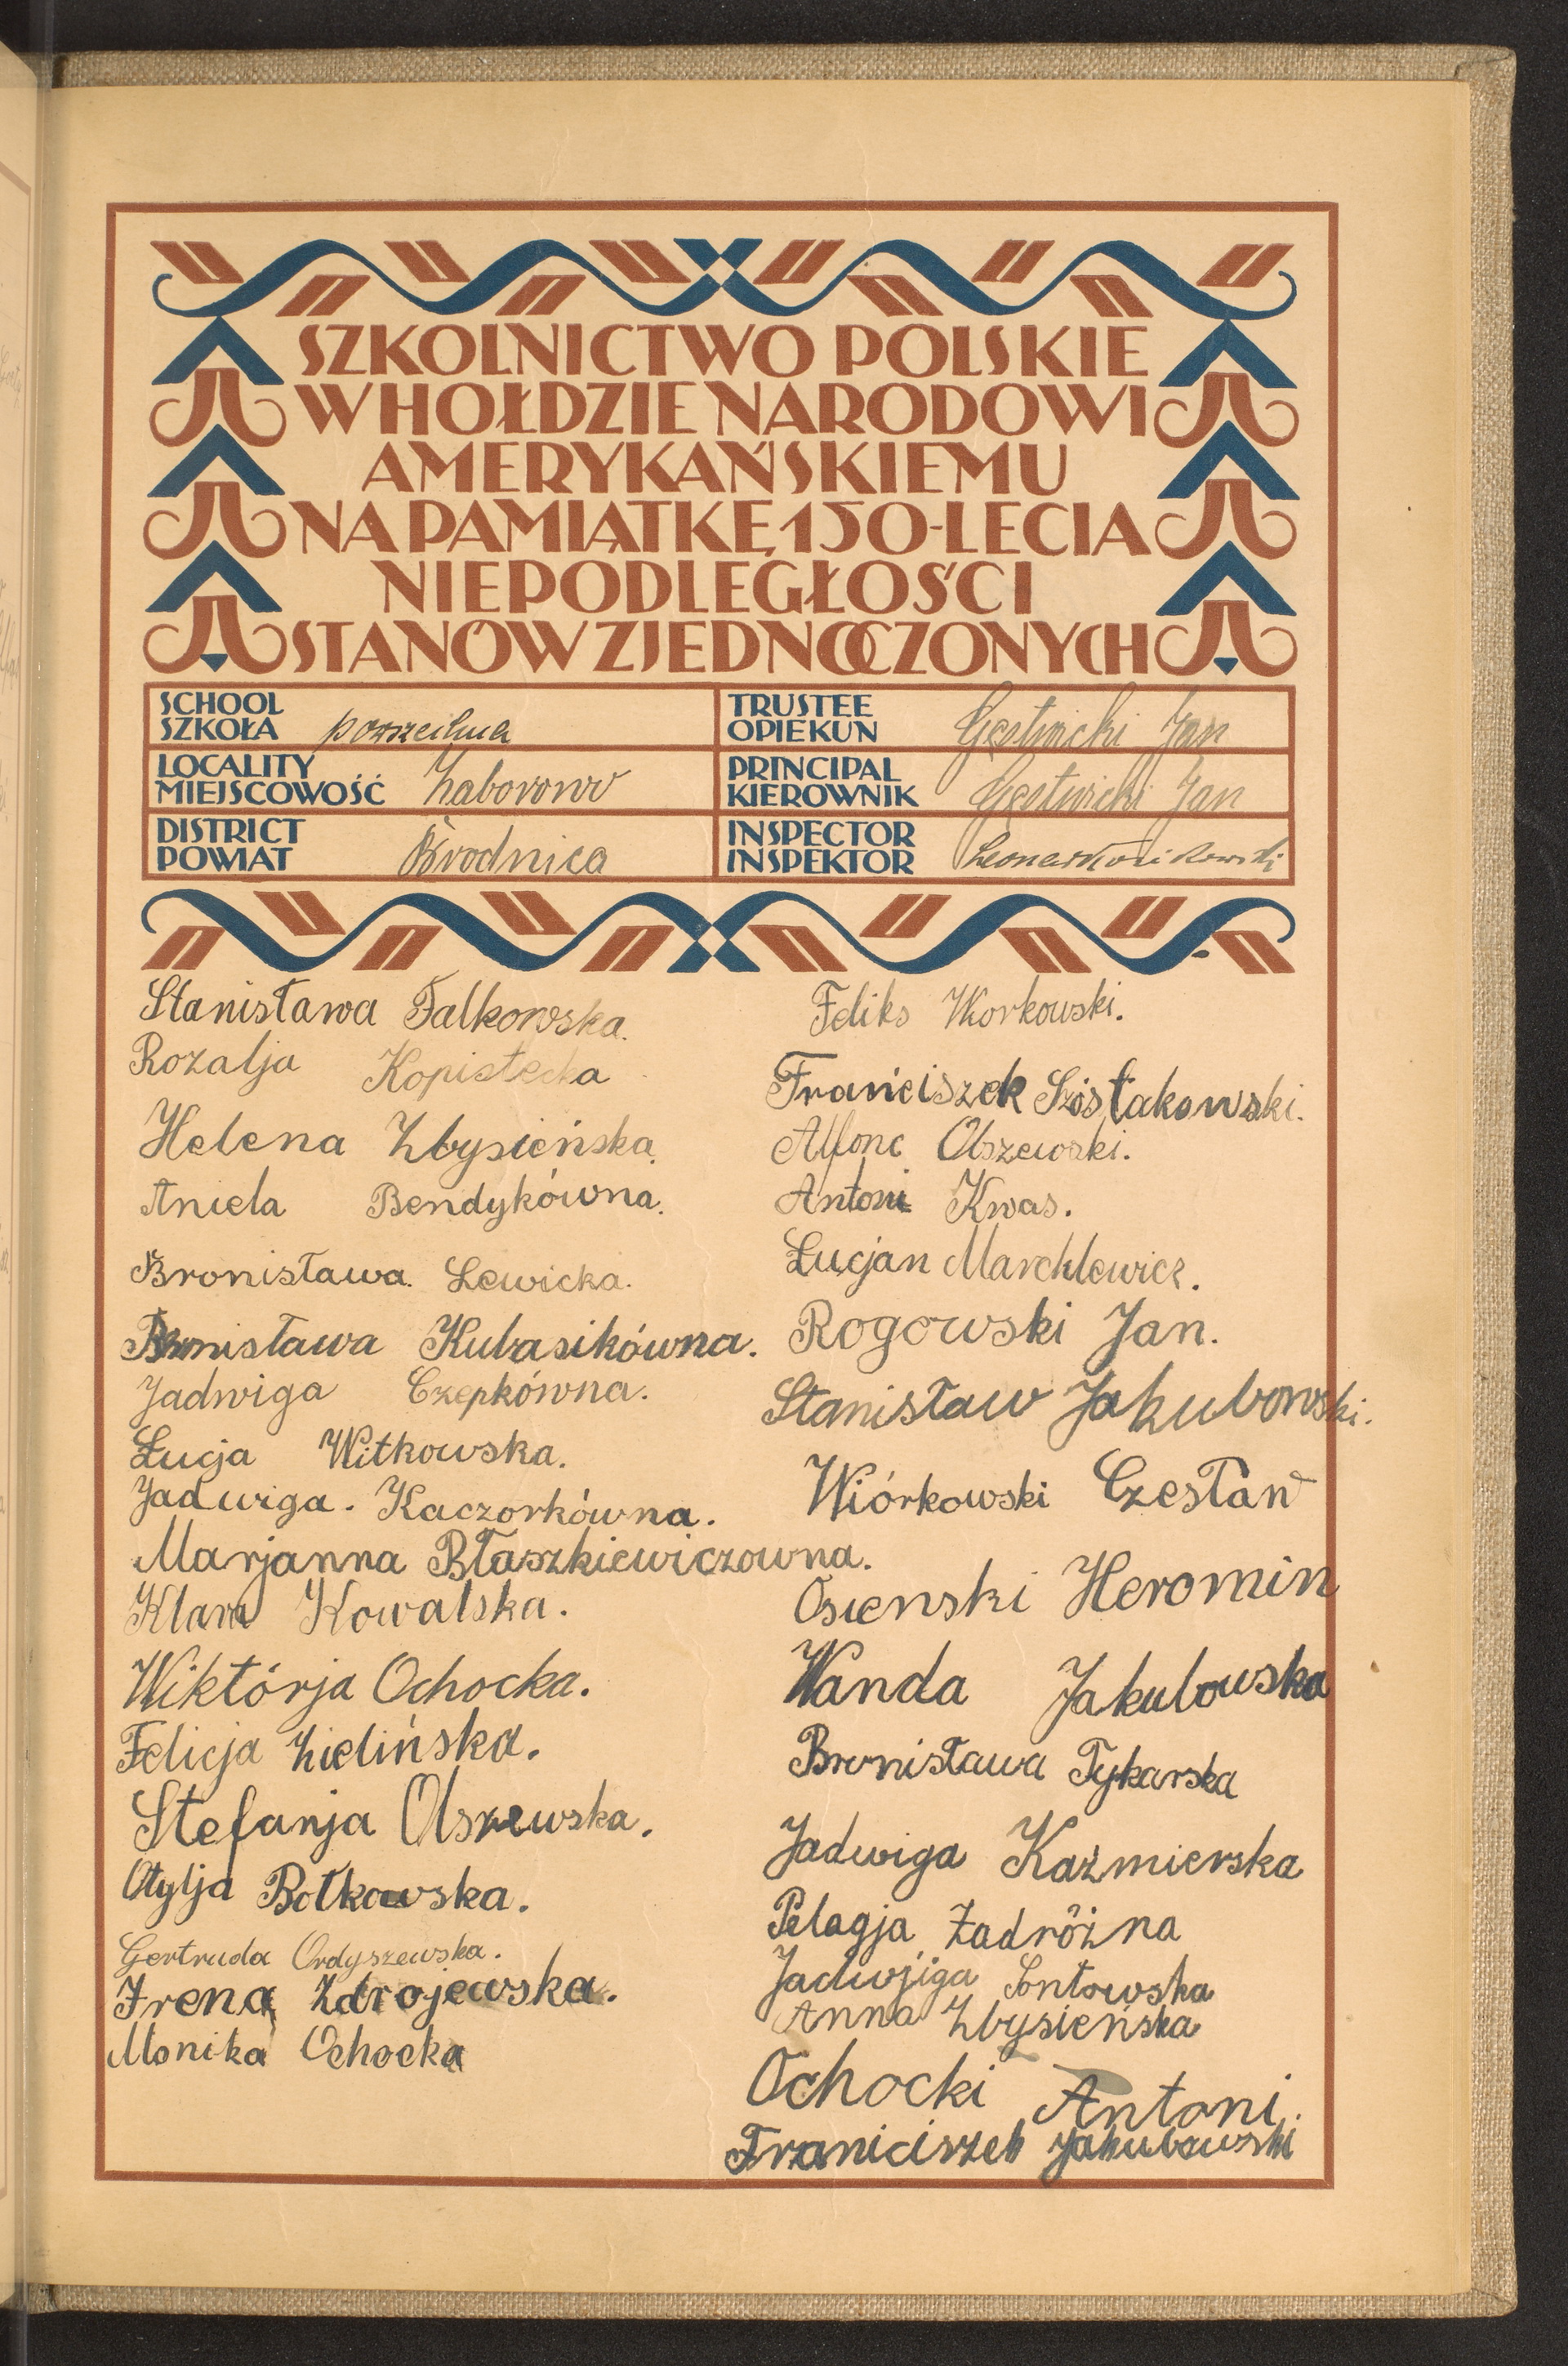 SZKOLNICTWO POLSKIE
W HOŁDZIE NARODOWI
AMERYKAŃSKIEMU
NA PAMIĄTKĘ 150-LECIA
NIEPODLEGŁOŚCI
STANÓW ZJEDNOCZONYCH
SCHOOL
SZKOŁA powszechna
TRUSTEE
OPIEKUN Gęstwicki Jan
LOCALITY
MIEJSCOWOŚĆ Zaborowo
PRINCIPAL
KIEROWNIK Gęstwicki Jan
DISTRICT
POWIAT Brodnica
INSPECTOR
INSPEKTOR
Stanisława Falkowska.
Rozalja Kopistecka
Helena Zbysieńska.
Aniela Bendykówna.
Bronisława. Lewicka.
Bronisława Kubasikówna.
Jadwiga Czepkówna.
Łucja Witkowska.
Jadwiga. Kaczorkówna.
Marjanna Błaszkiewiczowna.
Klara Kowalska.
Wiktórja Ochocka.
Felicja Zielińska.
Stefanja Olszewska.
Otylja Bołkowska.
Gertruda Ordyszewska.
Irena Zdrojewska.
Monika Ochocka
Feliks Workowski.
Franciszek Szóstakowski.
Alfonc Olszewski.
Antoni Kwas.
Łucjan Marchlewicz.
Rogowski Jan.
Stanisław Jakubowski.
Wiórkowski Czesław
Osienski Heromin
Wanda Jakubowska
Bronisława Tykarska
Jadwiga Kaźmierska
Pelagja Zadróżna
Jadwjiga Sontowska
Anna Zbysieńska
Ochocki Antoni.
Franiciszek Jakubowski